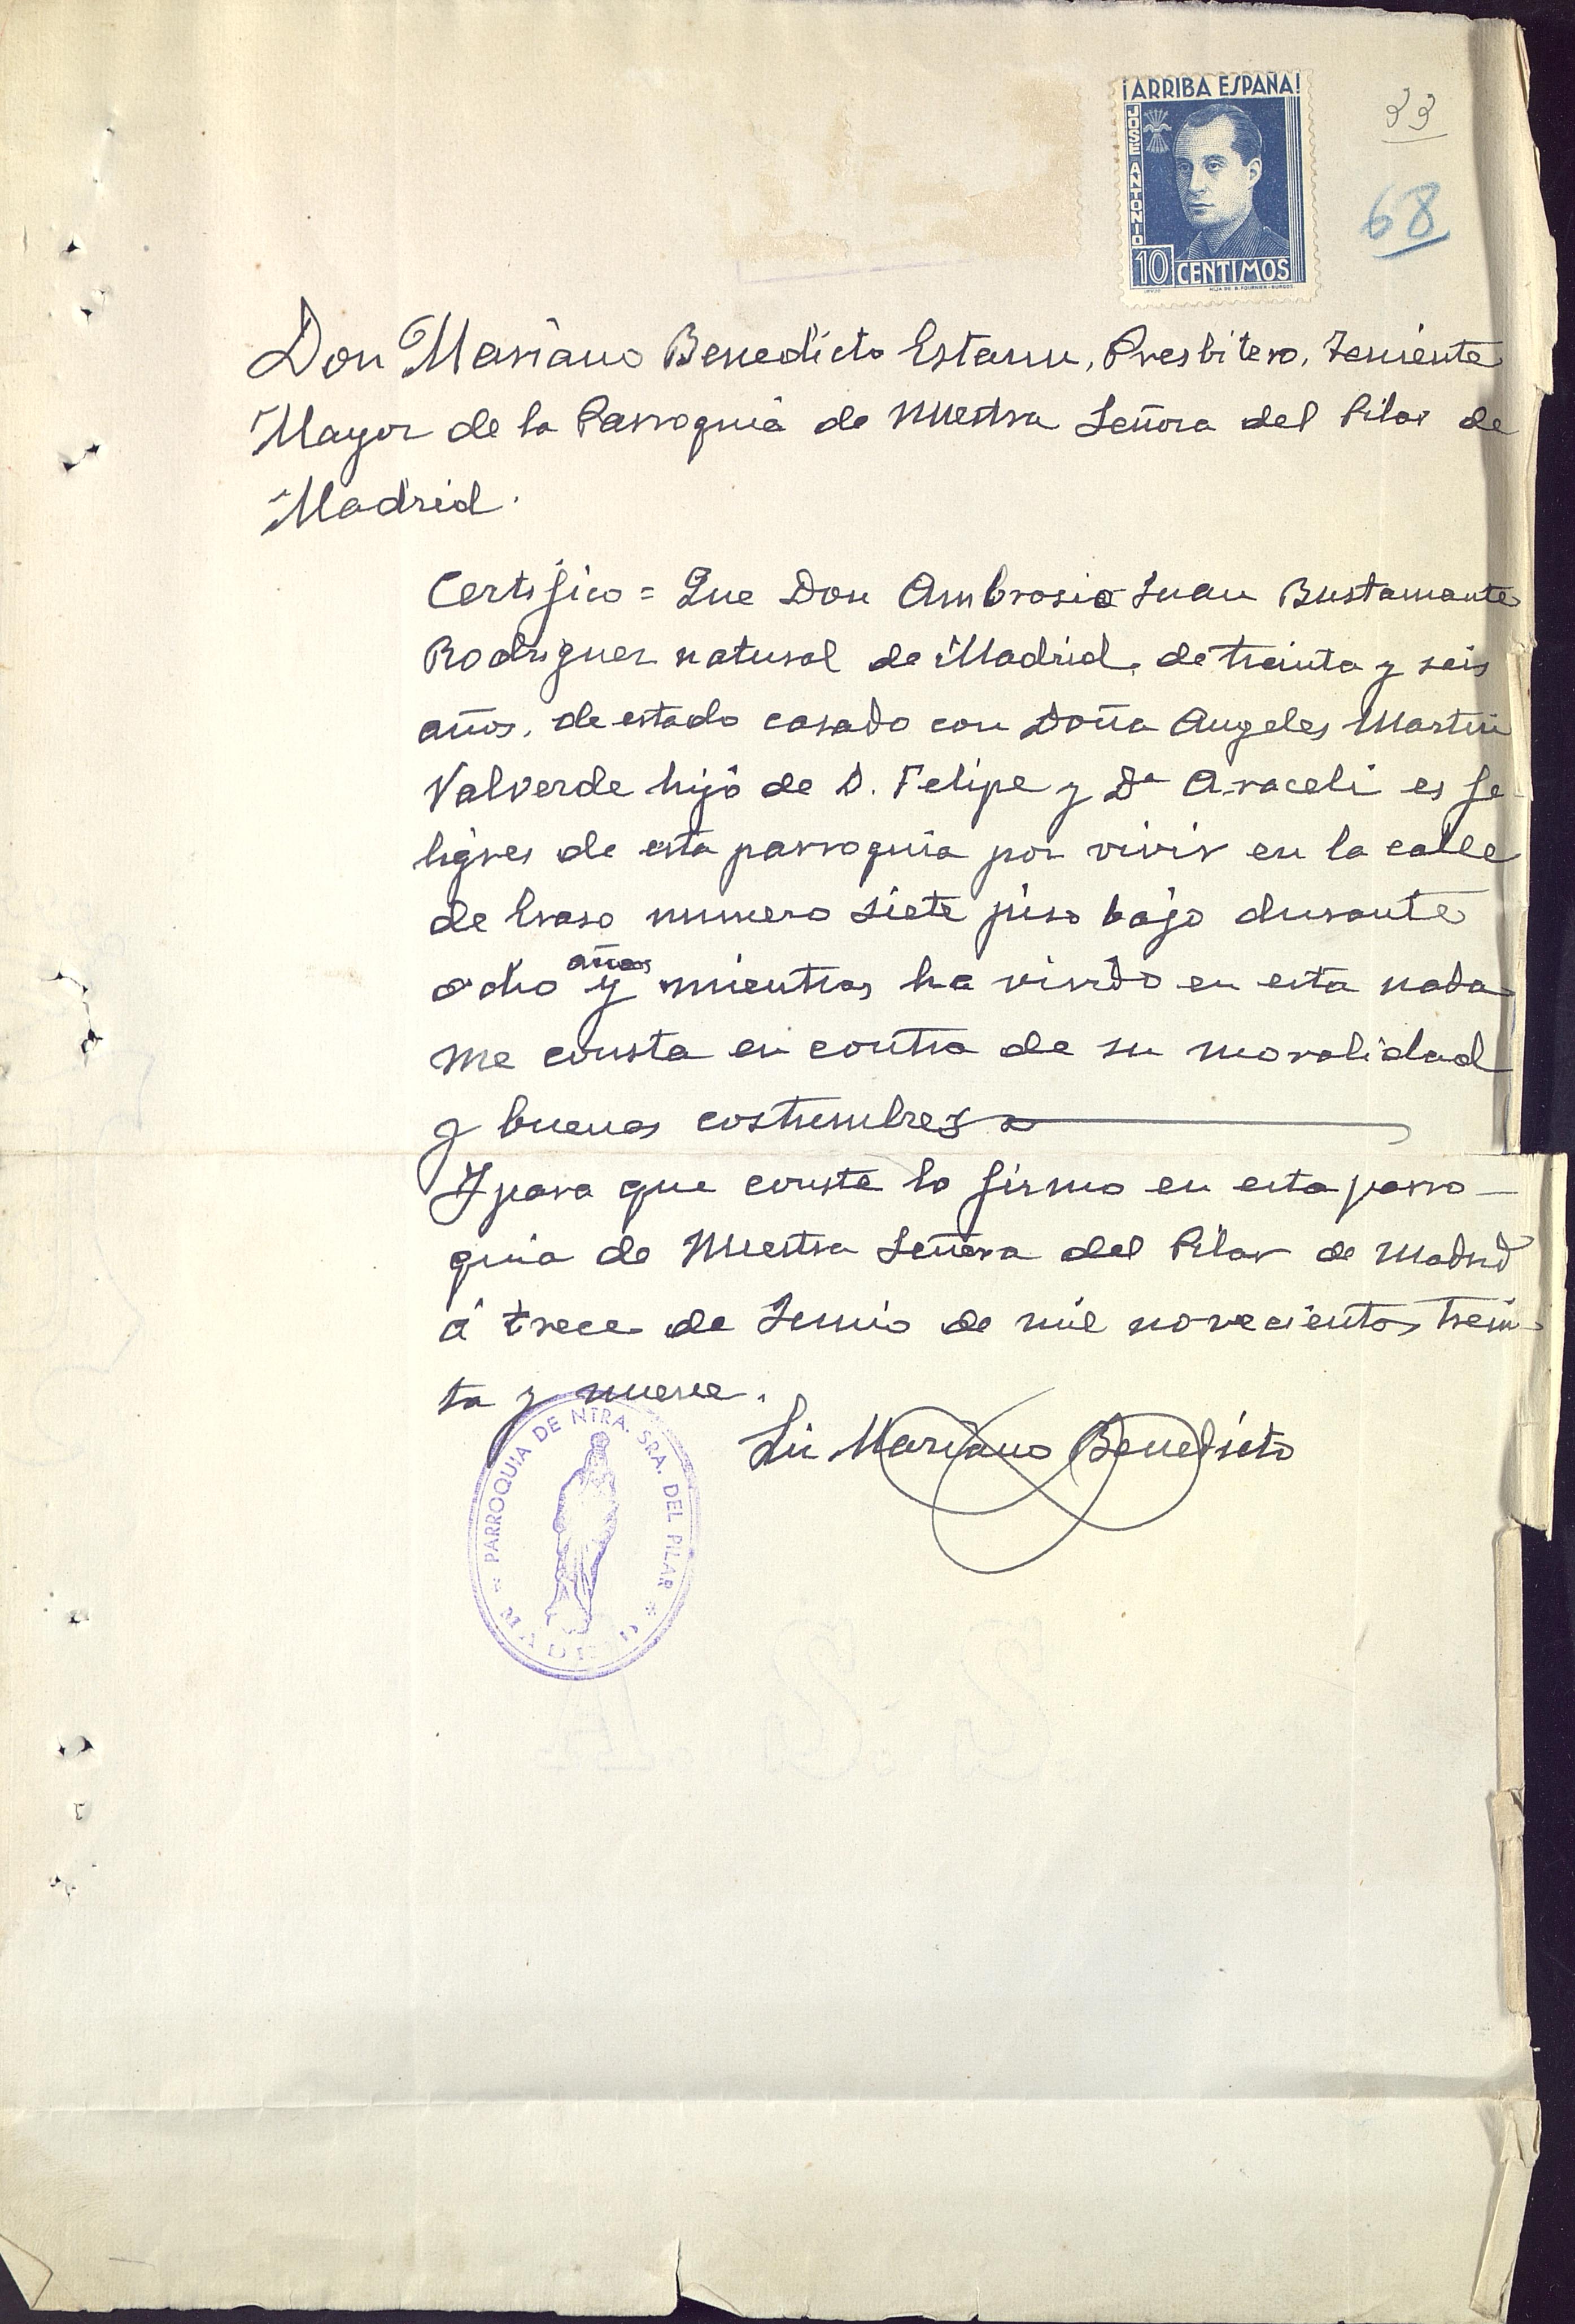 ¡ARRIBA ESPAÑA!
JOSE ANTONIO
10 CENTIMOS
HIJA DE B. FOURNIER-BURGOS
33
68
Don Mariano Benedicto Estaun, Presbitero, Teniente
Mayor de la Parroquia de Nuestra Señora del Pilar de
Madrid.
Certifico = Que Don Ambrosio Juan Bustamante
Rodriguez natural de Madrid, de treinta y seis
años, de estado casado con Doña Angeles Martin
Valverde hijo de D. Felipe y Dª Araceli es fe-
ligres de esta parroquia por vivir en la calle
de Eraso numero siete piso bajo durante
ocho años y mientras ha vivido en esta nada
me consta en contra de su moralidad
y buenas costumbres
Y para que conste lo firmo en esta parro-
quia de Nuestra Señora del Pilar de Madrid
á trece de Junio de mil novecientos trein-
ta y nueve.
Lic Mariano Benedicto
PARROQUIA DE NTRA. SRA. DEL PILAR * MADRID *